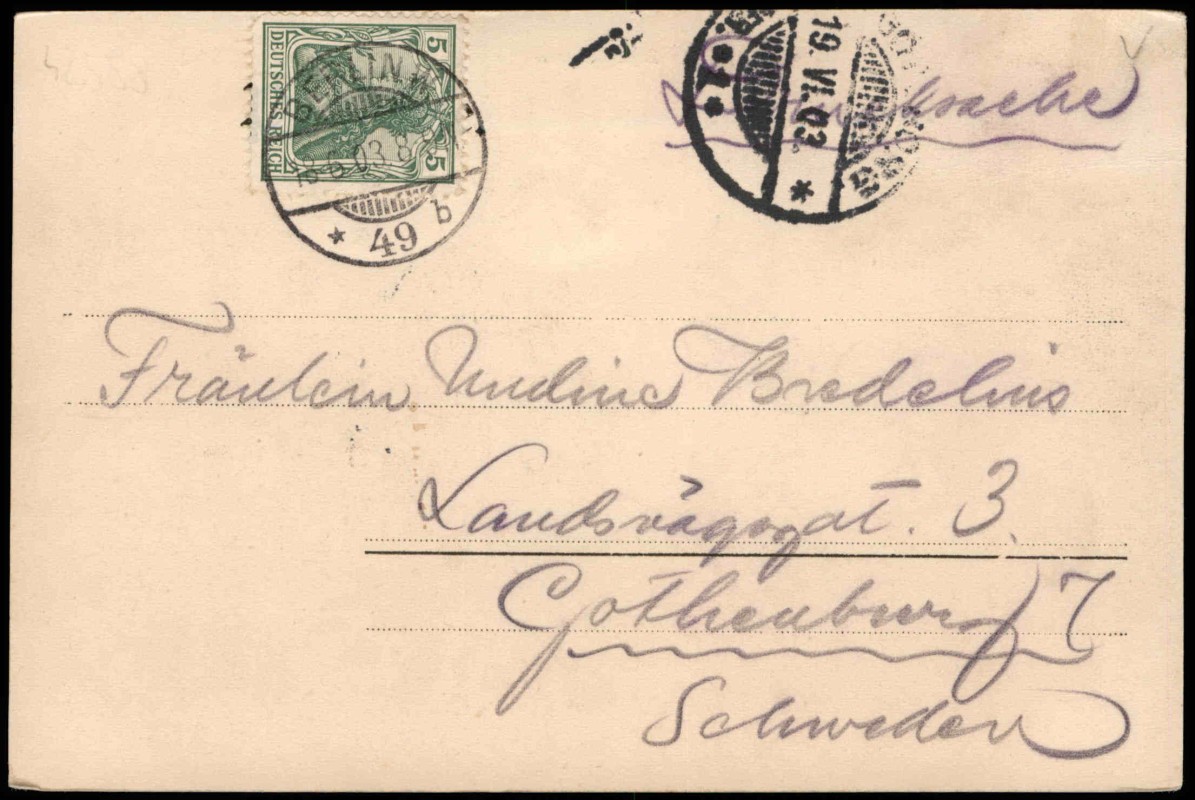 5 DEUTSCHES REICH 5
BERLIN
18.6.03.8
* 49 b
19.VI.03.
*1*
Drucksache
Fräulein Undine Bredelius
Landsvägsgat. 3.
Gothenburg 7
Schweden